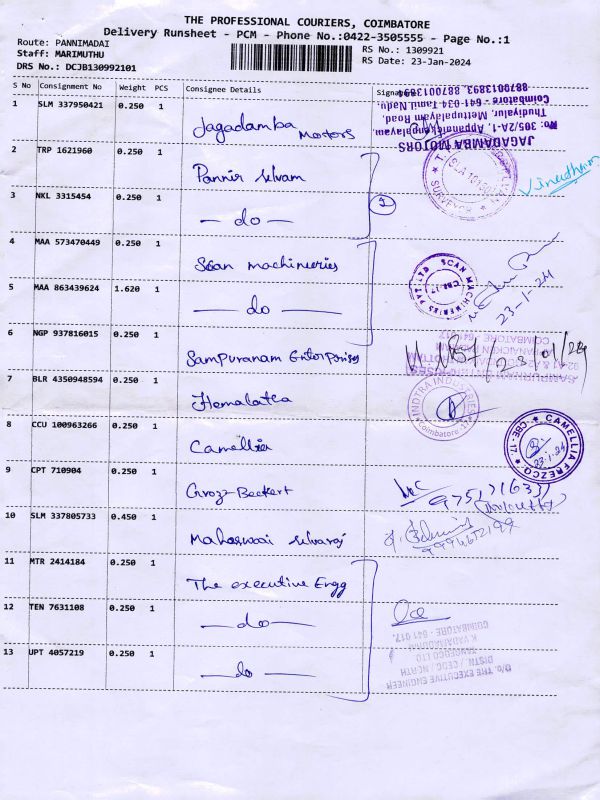 THE PROFESSIONAL COURIERS, COIMBATORE
Delivery Runsheet - PCM - Phone No.:0422-3505555 - Page No.:1
Route: PANNIMADAI
Staff: MARIMUTHU
DRS No.: DCJB130992101
RS No.: 1309921
RS Date: 23-Jan-2024
S No Consignment No Weight PCS Consignee Details Signature
1 SLM 337950421 0.250 1 Jagadamba Motors
JAGADAMBA MOTORS
No: 305/2A-1, Appanaickenpalayam,
Thudiyalur, Mettupalayam Road,
Coimbatore - 641 034 Tamil Nadu.
8870013893, 8870013894
2 TRP 1621960 0.250 1 Pannir selvam
SURVEYOR
3 NKL 3315454 0.250 1 — do —
4 MAA 573470449 0.250 1 Scan machineries
SCAN MACHINERIES PVT LTD
CBE-17
23-1-24
5 MAA 863439624 1.620 1 — do —
6 NGP 937816015 0.250 1 Sampuranam Enterprises
23/01/24
COIMBATORE
7 BLR 4350948594 0.250 1 Hemalatha
INDTRA INDUSTRIES
Coimbatore
8 CCU 100963266 0.250 1 Camellia
CAMELLIA FREZCO
CBE-17
23.1.24
9 CPT 710904 0.250 1 Groz-Beckert
10 SLM 337805733 0.450 1 Maheswari selvaraj
11 MTR 2414184 0.250 1 The executive Engg
12 TEN 7631108 0.250 1 — do —
13 UPT 4057219 0.250 1 — do —
O/o. THE EXECUTIVE ENGINEER
DISTN / CEDC, NORTH
TANGEDCO LTD
K.VADAMADURAI
COIMBATORE - 641 017.